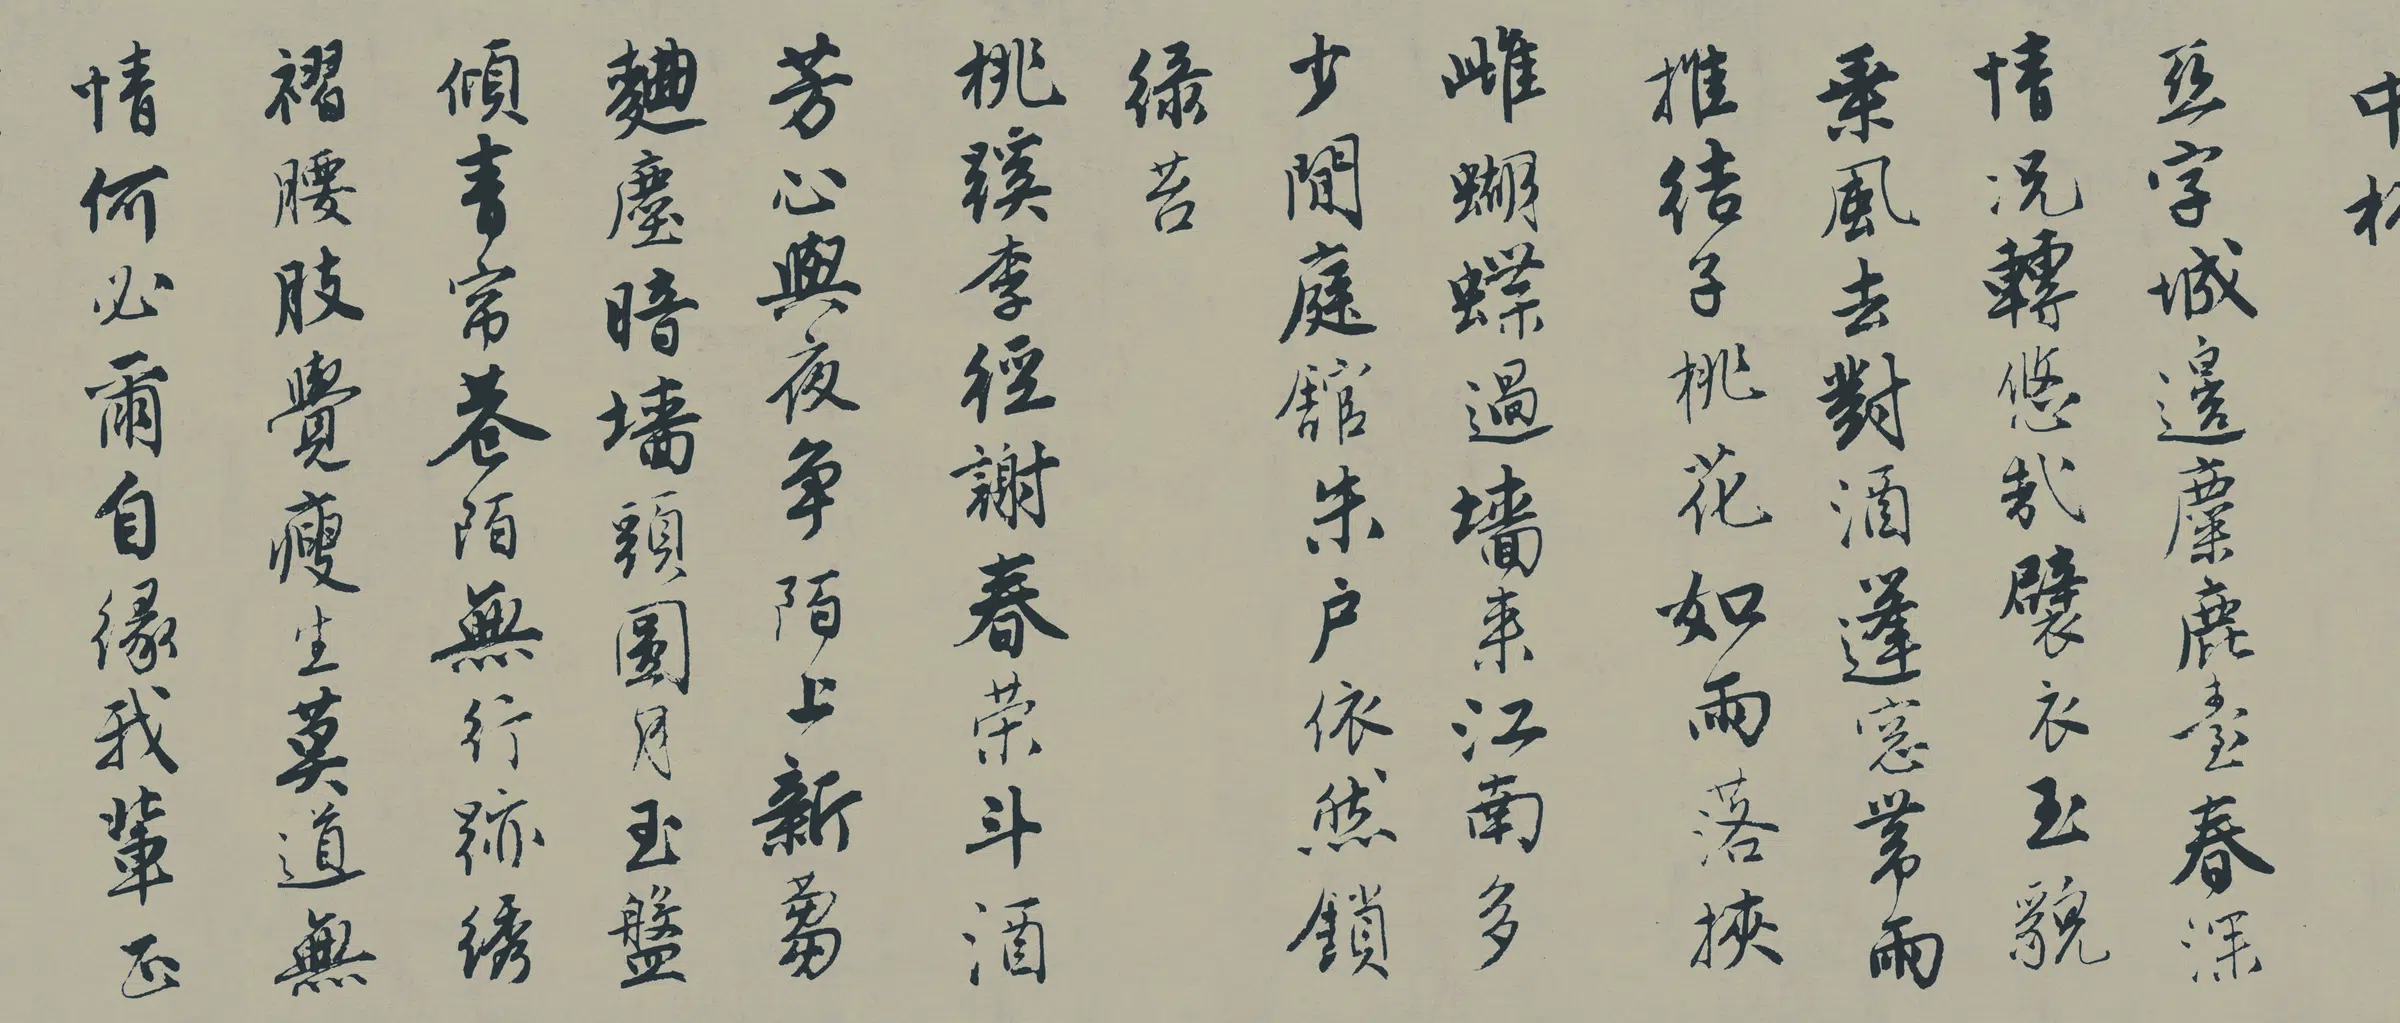 亞字城邊麋鹿臺春深
情况轉悠哉襞衣玉貌
乗風去對酒蓬窓帶雨
推結子桃花如雨落挾
雌蝴蝶過墻来江南多
少閒庭館朱户依然鎖
緑苔
桃蹊李徑謝春荣斗酒
芳心與夜争陌上新蒭
麯塵暗墻頭圓月玉盤
傾青帘巷陌無行跡綉
褶腰肢覺瘦生莫道無
情何必爾自緣我輩正